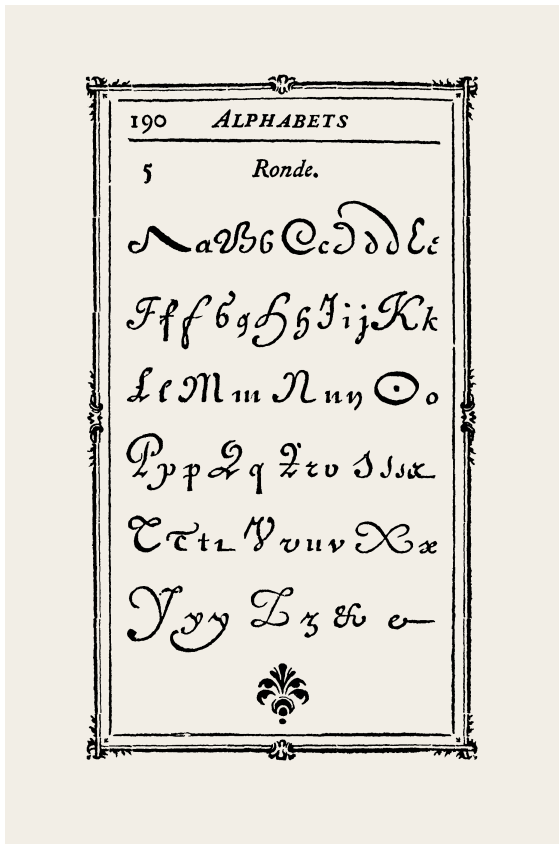 190 ALPHABETS
5 Ronde.
A a B b C c D d d E e
F f f G g H h I i j K k
L l M m N n n O o
P p p Q q R r v S s s
T T t t V v u v X x
Y y y Z z & e